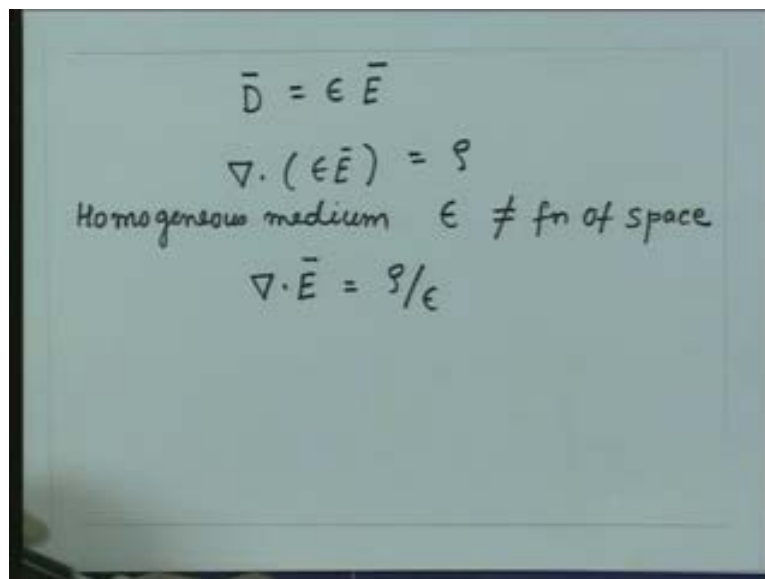 D̄ = ϵ Ē
∇· (ϵĒ) = ρ
Homogeneous medium ϵ ≠ fn of space
∇·Ē = ρ/ϵ